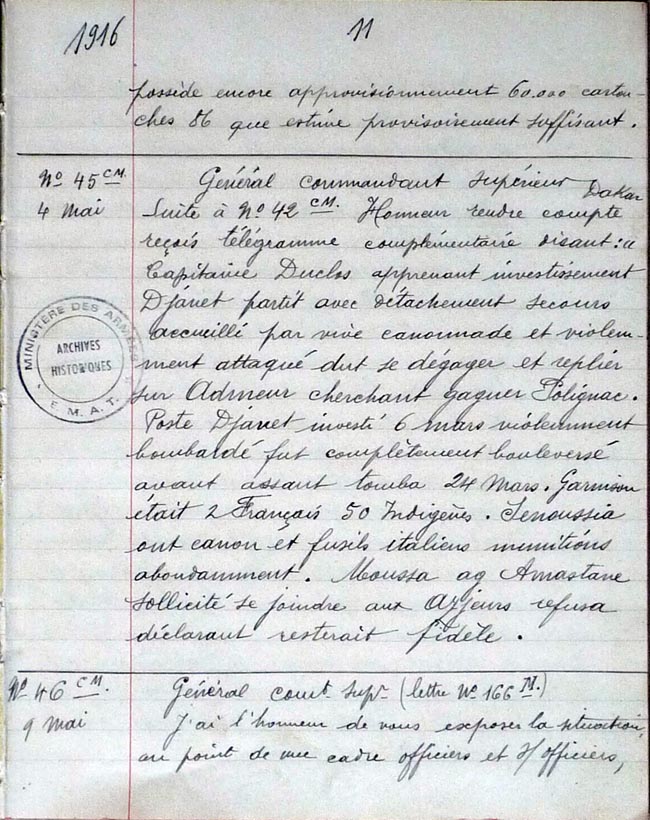 1916
11
possède encore approvisionnement 60.000 cartou-
ches 86 que estime provisoirement suffisant.
No 45 CM.
4 Mai
Général commandant supérieur Dakar
Suite à No 42 CM. Honneur rendre compte
reçois télégramme complémentaire disant: "
Capitaine Duclos apprenant investissement
Djanet partit avec détachement secours
accueilli par vive canonnade et violem-
ment attaqué dut se dégager et replier
sur Admeur cherchant gagner Polignac.
Poste Djanet investi 6 mars violemment
bombardé fut complètement bouleversé
avant assaut tomba 24 Mars. Garnison
était 2 Français 50 Indigènes. Senoussia
ont canon et fusils italiens munitions
abondamment. Moussa ag Amastane
sollicité se joindre aux Azjeurs refusa
déclarant resterait fidèle.
MINISTÈRE DES ARMÉES
ARCHIVES
HISTORIQUES
E. M. A. T.
No 46 CM.
9 Mai
Général comt Supr (lettre No 166 M.)
J'ai l'honneur de vous exposer la situation,
au point de vue cadre officiers et S/officiers,